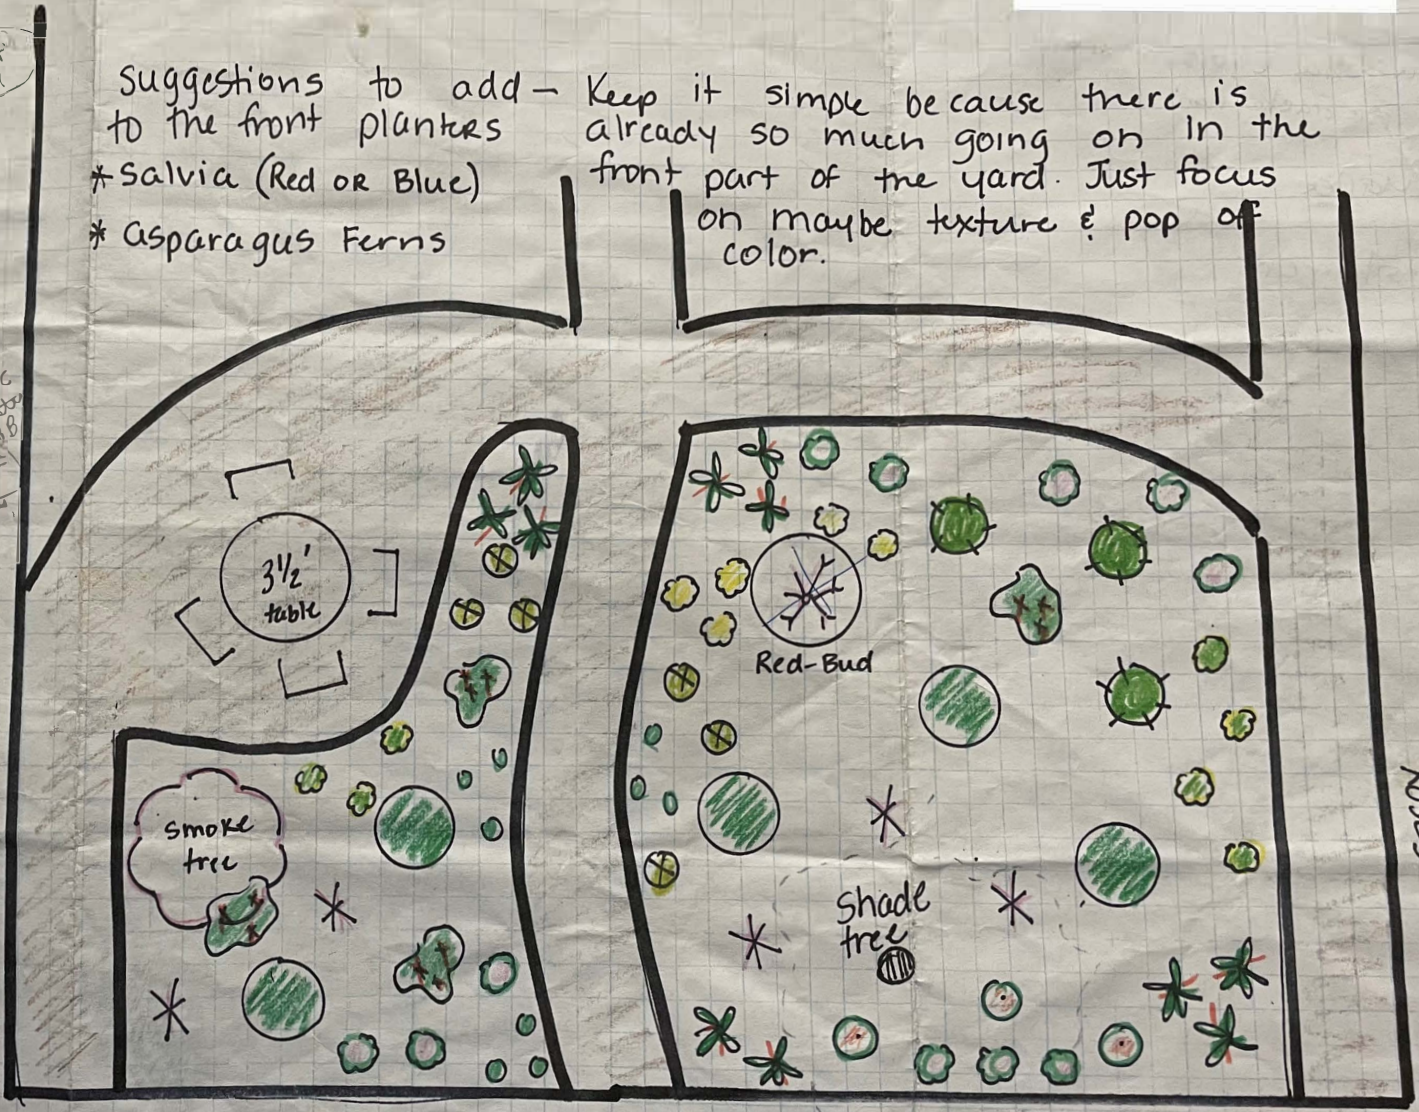 Suggestions to add –
to the front planters
* Salvia (Red OR Blue)
* asparagus Ferns
Keep it simple because there is
already so much going on in the
front part of the yard. Just focus
on maybe texture & pop off
color.
3½'
table
Red-Bud
smoke
tree
Shade
tree